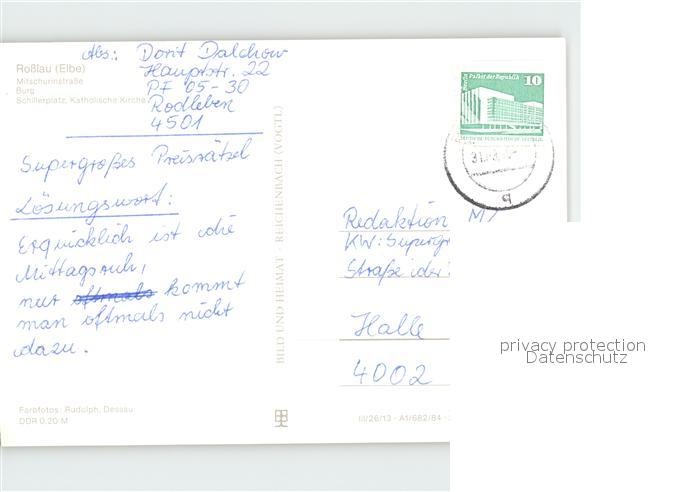 Abs.: Dorit Dalchow
Hauptstr. 22
PF 05-30
Rodleben
4501
Roßlau (Elbe)
Mitschurinstraße
Burg
Schillerplatz, Katholische Kirche
Supergroßes Preisrätsel
Lösungswort:
Erquicklich ist die
Mittagsruh,
nur oftmals kommt
man oftmals nicht
dazu.
Farbfotos: Rudolph, Dessau
DDR 0,20 M
BILD UND HEIMAT REICHENBACH (VOGTL)
Palast der Republik
10
Redaktion
KW: Supergr
Straße der
Halle
4002
III/26/13 · A1/682/84
privacy protection
Datenschutz